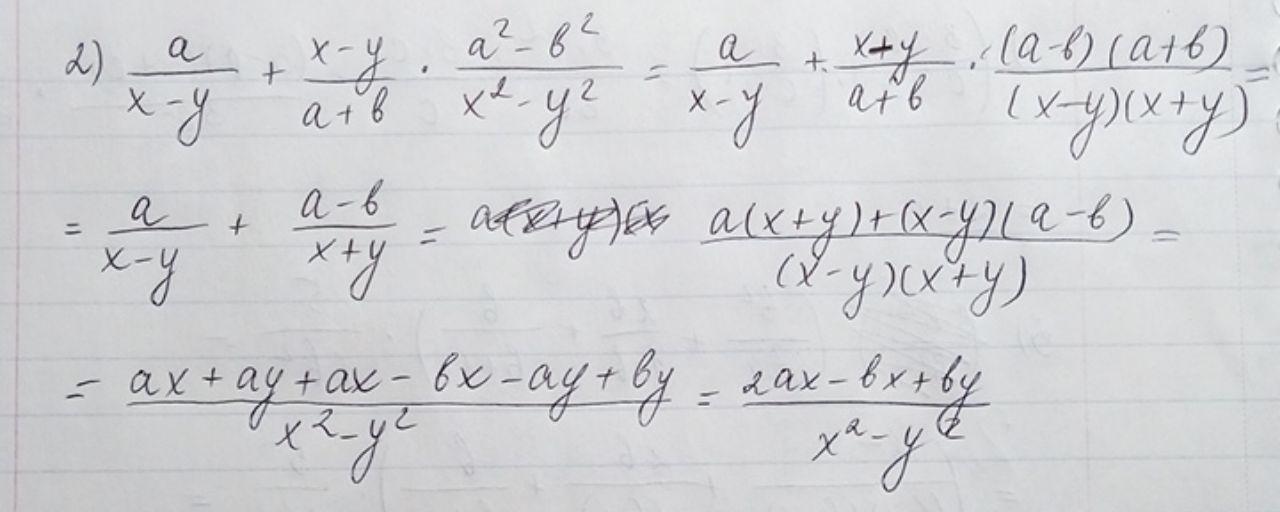 2) a/(x-y) + (x-y)/(a+b) · (a²-b²)/(x²-y²) = a/(x-y) + (x+y)/(a+b) · ((a-b)(a+b))/((x-y)(x+y)) =
= a/(x-y) + (a-b)/(x+y) = a (a(x+y)+(x-y)(a-b))/((x-y)(x+y)) =
= (ax+ay+ax-bx-ay+by)/(x²-y²) = (2ax-bx+by)/(x²-y²)